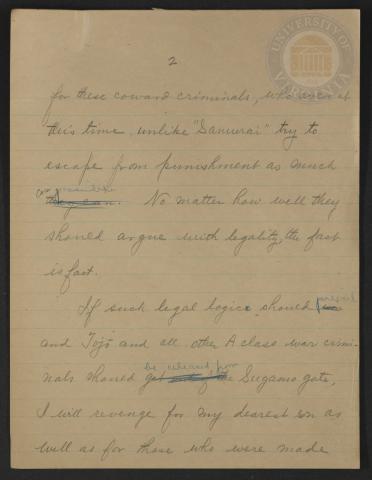 UNIVERSITY OF VIRGINIA
2
for these coward criminals, who even at
this time unlike "Samurai" try to
escape from punishment as much
as possible. No matter how well they
should argue with legality, the fact
is fact.
If such legal logic should prevail
and Tojo and all other A class war crimi-
nals should be released from Sugamo gate,
I will revenge for my dearest son as
well as for those who were made